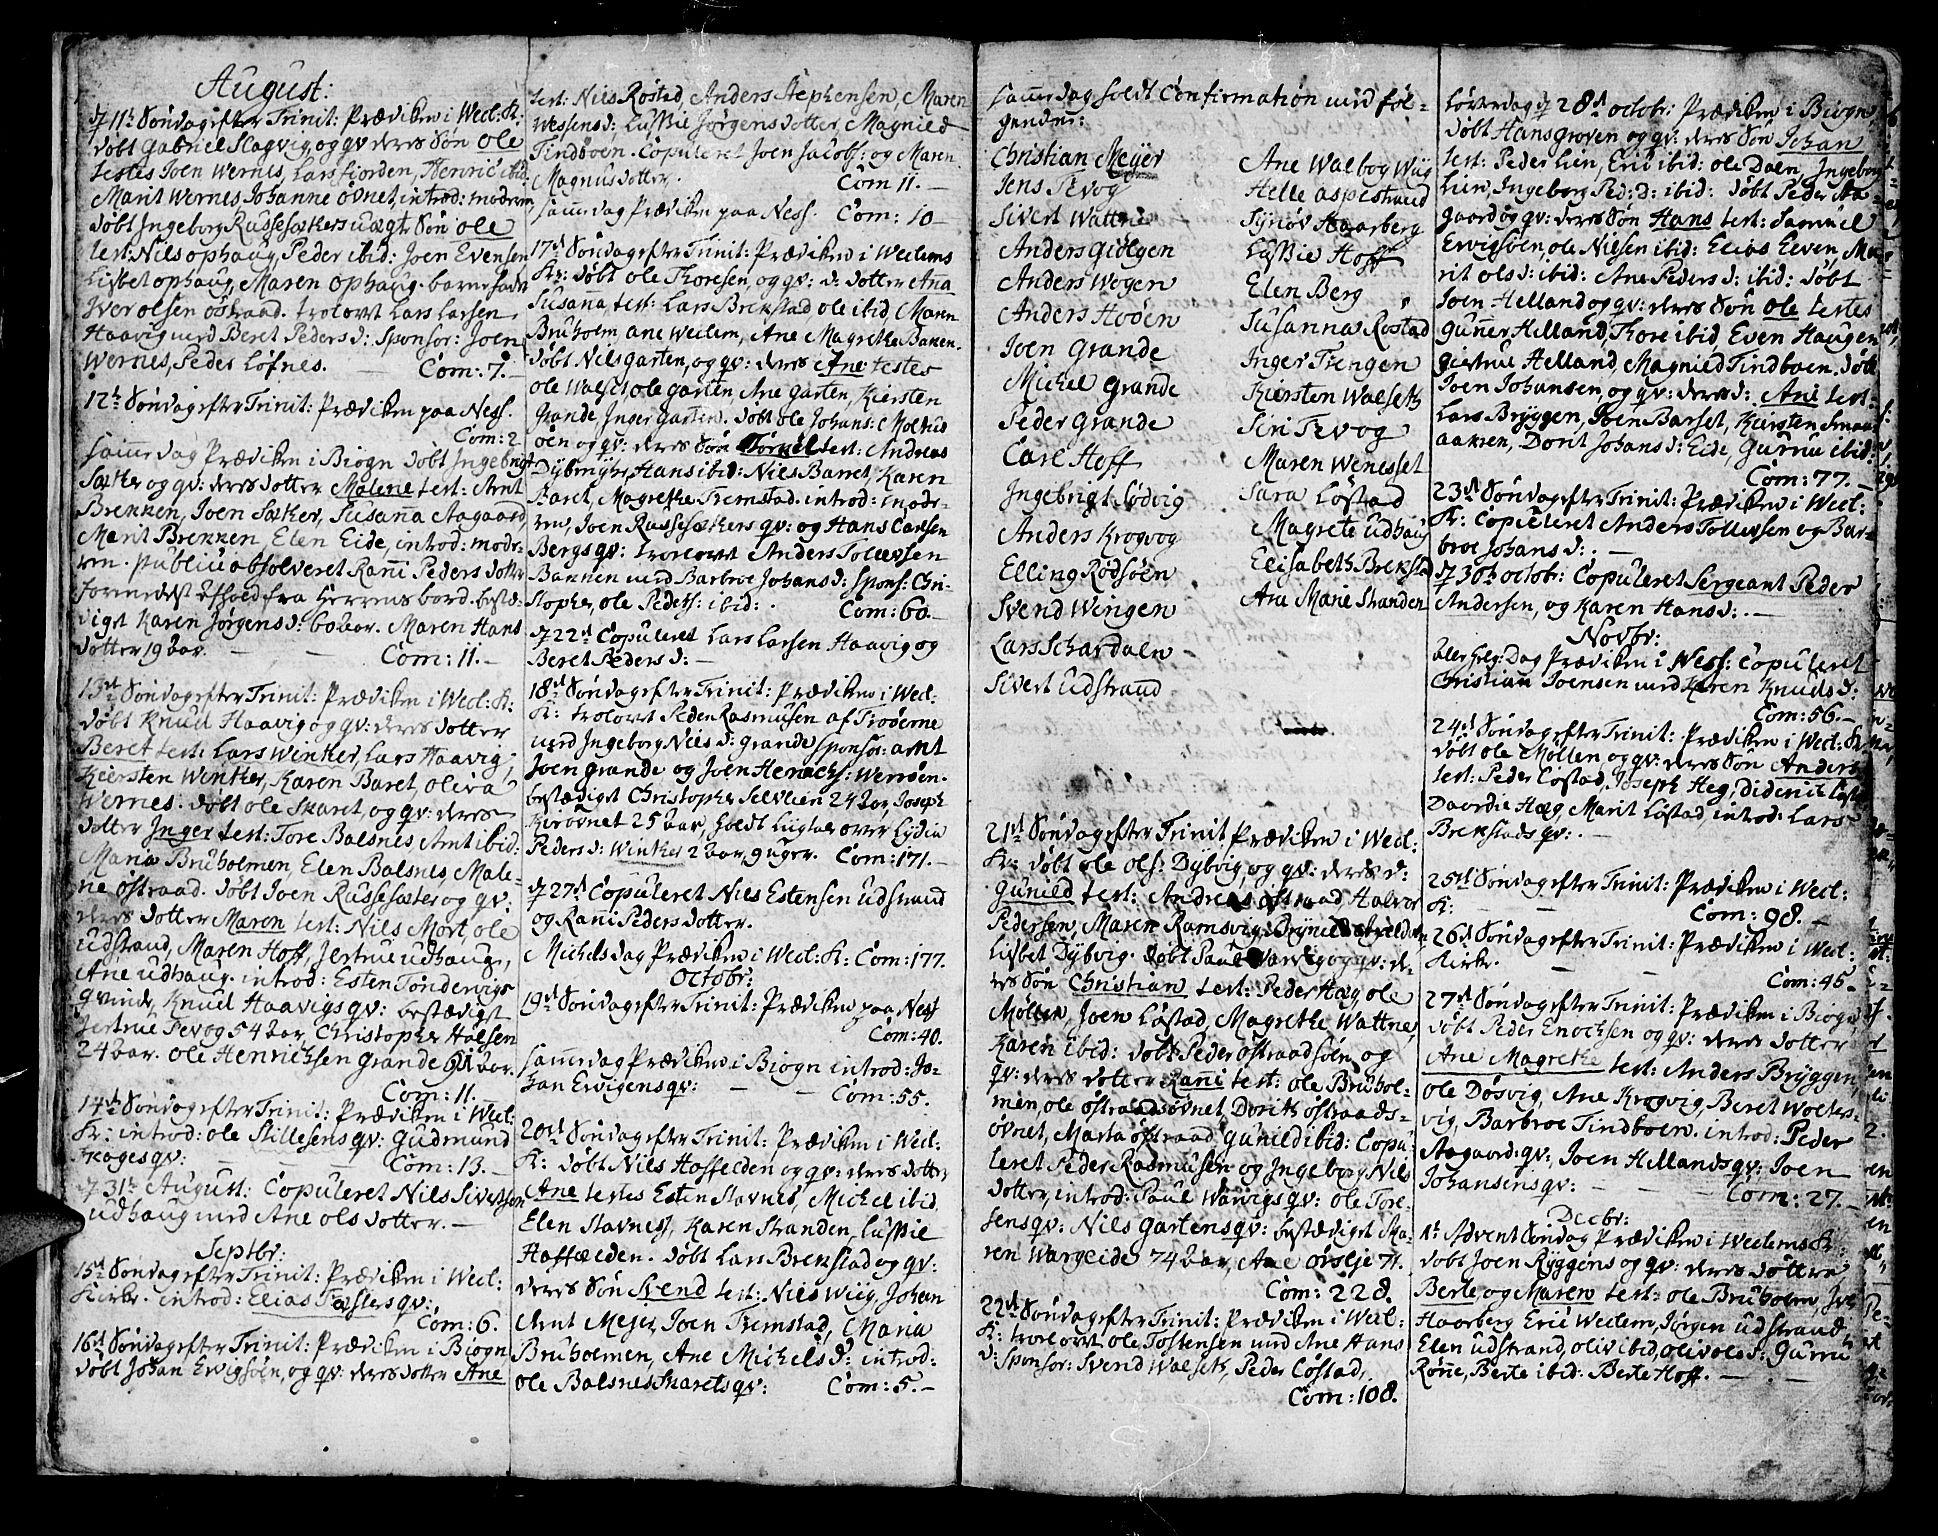 August:
D 11te Søndag efter Trinit: Prædiken i Wecl: K:
døbt Gabriel Slagvig, og qv: deres Søn Ole
testes Joen Wernes, Lars fiorden, Henric ibid:
Marit Wernes, Johanne øvnet, introd: moderen,
døbt Ingeborg Russesæters uægt Søn ole
test: Nils ophaug, Peder ibid: Joen Evensen
Lisbet ophaug, Maren ophaug. barnefader
Iver olsen østraad. trolovt Lars Larsen
Haavig med Beret Peders d: Sponsor: Joen
Wernes, Peder Løfnes. — Com: 7. —
12te Søndag efter Trinit: Prædiken paa Ness.
Com: 2
samme dag Prædiken i Biogn døbt Ingebrigt
Sæther og qv: deres dotter Malene test: Arnt
Brekken, Joen Sæter, Susanna Aagaard,
Marit Brekken, Elen Eide, introd: mode-
ren. publice absolveret Ranni Peders dotter
formedelst afhold fra Herrens bord. bestæ-
diget Karen Jørgens d: 60 aar. Maren Hans
dotter 19 aar. — — Com: 11. —
13de Søndag efter Trinit: Prædiken i Wecl: K:
døbt Knud Haavig og qv: deres dotter
Beret test: Lars Winker, Lars Haavig,
Kiersten Winker, Karen Baret, oliva
Wernes. døbt ole Skaret og qv: deres
dotter Inger test: Tore Balsnes Arnt ibid:
Maria Bruholmen, Elen Balsnes, Male-
ne østraad. døbt Joen Russesæter og qv:
deres dotter Maren test: Nils Mort, ole
udstrand, Maren Hoff, Jertrue udhaug,
Ane udhaug. introd: Esten Tondervigs
qvinde, Knud Haavigs qv: bestædigt
Jertrue Tevog 54 aar, Christopher Halsen
24 aar. ole Henrichsen Grande 91 aar.
Com: 11. —
14de Søndag efter Trinit: Prædiken i Wecl:
K: introd: ole Stillesens qv: Gudmund
Krogesqv: — Com: 13. —
D 31te August: Copuleret Nils Sivertsøn
udhaug med Ane ols dotter. —
Septbr:
15de Søndag efter Trinit: Prædiken i Wecl:
Kirke. introd: Elias Fæstersqv:
Com: 6.
16de Søndag efter Trinit: Prædiken i Biogn
døbt Johan Ewigsøen, og qv: deres dotter Ane
test: Nils Rostad, Anders Stephensen, Maren
Wessens d: Lussie Jørgens dotter, Magnild
Tindboen. Copuleret Joen Jacobs: og Maren
Magnus dotter. Com 11. —
samme dag Prædiken paa Ness. Com: 10 —
17de Søndag efter Trinit: Prædiken i Weclems
K: døbt ole Thoresen, og qv: d: dotter Anna
Susana, test: Lars Brekstad ole ibid, Maren
Bruholm, ane Weclem, Ane Magrethe Bakken.
døbt Nils Garten, og qv: deres Ane testes
ole Walset, ole Garten Ane Garten, Kiersten
Grande, Inger Garten. døbt ole Johans: Moldus
øen og qv: deres Søn Tørnel test: Andreas
Dybrighs, Hans ibid: Niels Barret, Karen
Baret, Magrethe Tremstad. introd: mode-
ren, Joen Russesæters qv: og Hans Carlsen
Bergs qv: trolovet Anders Tollevsen
Bakken med Barbroe Johans d: Spons: Chri-
stopher, ole Peders: ibid: Com: 60. —
D 22de Copuleret Lars Larsen Haavig og
Beret Peders d: —
18de Søndag efter Trinit: Prædiken i Wecl:
K: trolovt Peder Rasmusen af Trøerne
med Ingeborg Niels d: Grande sponsor: Arnt
Joen Grande og Joen Henrichs: Werrøen.
bestædiget Christopher Selvlien 24 aar, Joseph
Kirøvnet 25 aar, holdt Ligtale over Lydia
Peders d: Winker 2 aar, 9 uger. Com: 171. —
D 27de Copuleret Niels Estensen udstrand
og Rani Peders dotter.
Michels dag Prædiken i Wecl: K: Com: 177.
Octobr:
19de Søndag efter Trinit: Prædiken paa Ness
Com: 40.
samme dag Prædiken i Biogn introd: Jo-
han Ewigens qv: — Com: 55.
20de Søndag efter Trinit: Prædiken i Wecl:
K: døbt Niels Hoffelden og qv: deres dotter
Ane testes Esten Stavnes, Michel ibid.
Elen Stavnes, Karen Stranden, Lussie
Hoffælden. døbt Lars Brekstad og qv:
deres Søn Svend test: Niels Wiig, Johan
Arnt Mejer, Joen Tremstad, Maria
Bruholmen, Ane Michels d: introd:
ole Balsnes Skarets qv: Com: 5. —
samme dag holdt Confirmation med føl-
gende:
Christian Meyer
Jens Tevog
Sivert Wattne
Anders Giølgen
Anders Wegen
Anders Høøen
Joen Grande
Michel Grande
Peder Grande
Carl Hoff
Ingebrigt Lødvig
Anders Krogvog
Elling Rødsøen
Svend Wingen
Lars Schardalen
Sivert Udstrand
Ane Walbog Wiig
Helle Aspestrand
Synøv Haarberg
Lussie Hoff
Elen Berg
Susanna Rostad
Inger Trengen
Kiersten Walseth
Siri Tevog
Maren Wenesset
Sara Løstad
Magrete udhaug
Elisabeth Brekstad
Ane Marie Stranden
21de Søndag efter Trinit, Prædiken i Wecl:
K: døbt ole ols: Dybvig, og qv: deres d:
Gunild test: Andreas østraad Halvor
Pedersen, Maren Ramsvig,
Lisbet Dybvig. døbt Paul Warvig og qv: de-
res Søn Christian test: Peder Hæg ole
Møllen, Joen Løstad, Magrethe Wattne,
Karen ibid: døbt Peder østraadsøen, og
qv: deres dotter Ranni test: ole Bruhol-
men, ole østraadsøvnet, Dorith østraads-
øvnet, Marta østraad, Gunild ibid: Copu-
leret Peder Rasmusen og Ingeborg Niels
dotter, introd: Paul Warvigs qv: ole Tore-
sens qv: Niels Gartens qv: bestædiget Ka-
ren Wargeide 74 aar, Ane ørslje 71.
Com: 228.
22de Søndag efter Trinit: Prædiken i Wecl:
K: trolovt ole Tostensen med Ane Hans
d: sponsor: Svend Walseth, Peder Løstad,
Com: 108.
Løverdag D 28de octobr: Prædiken i Biogn
døbt Hans Groven og qv: deres Søn Johan
test: Peder Lien, Eric ibid: ole Dalen, Ingeborg
Lien, Ingeborg Ped: d: ibid: døbt Peder Aa-
gaard og qv: deres Søn Hans test: Samuel
Ewigsøen, ole Nielsen ibid: Elias Elven, Ma-
rit ols d: ibid: Ane Peders d: ibid: døbt
Joen Helland og qv: deres Søn ole testes
Gunner Helland, Thore ibid, Even Haugen
Giertrue Helland, Magnild Tindboen, døbt
Joen Johansen, og qv: deres d: Ane test:
Lars Bryggen, Joen Barset, Kiersten Smaa-
aanen, Dorit Johans d: Eide, Gurru ibid:
Com: 77. —
23de Søndag efter Trinit: Prædiken i Wecl:
K: Copuleret Anders Tollevsen og Bar-
broe Johans d: . —
D 30te octobr: Copuleret Sergeant Peder
Andersen, og Karen Hans d: . —
Novbr:
aller helg: Dag Prædiken i Ness: Copuleret
Christian Joensen med Karen Knuds d:
Com: 56. —
24de Søndag efter Trinit: Prædiken i Wecl: K:
døbt ole Møllen og qv: deres Søn Anders
test: Peder Løstad, Joseph Heg, Diderich Løstad
Daardie Hæg, Marit Løstad, introd: Lars
Brekstads qv: . —
25de Søndag efter Trinit: Prædiken i Wecl:
K: — Com: 98. —
26de Søndag efter Trinit: Prædiken i Wecl:
Kirke. — — Com: 45 —
27de Søndag efter Trinit: Prædiken i Biogn
døbt Peder Enochsen og qv: deres dotter
Ane Magrethe test: Anders Bryggen,
ole Døsvig, Ane Krogvig, Beret Wolters-
vig, Barbroe Tindboen. introd: Peder
Aagaards qv: Joen Hellands qv: Joen
Johansens qv: — Com: 27. —
Decbr:
1te Advent Søndag Prædiken i Weclems K:
døbt Joen Ryggens og qv: deres døttre
Berte, og Maren test: ole Bruholm, Iver
Haarberg Eric Weclem, Jørgen udstrand,
Elen udstrand, oliv ibid, oliv ols d: Gurru
Rønne, Berte ibid: Berte Hoff. —